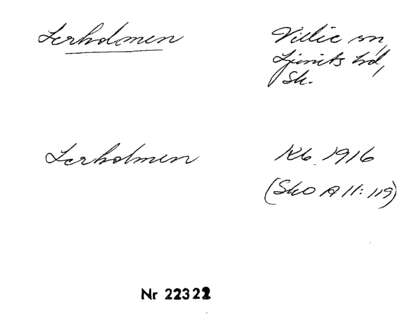 Lerholmen
Villie sn,
Ljunits hd,
Sk.
Lerholmen
Kb. 1916
(SkO A 11: 119)
Nr 22322